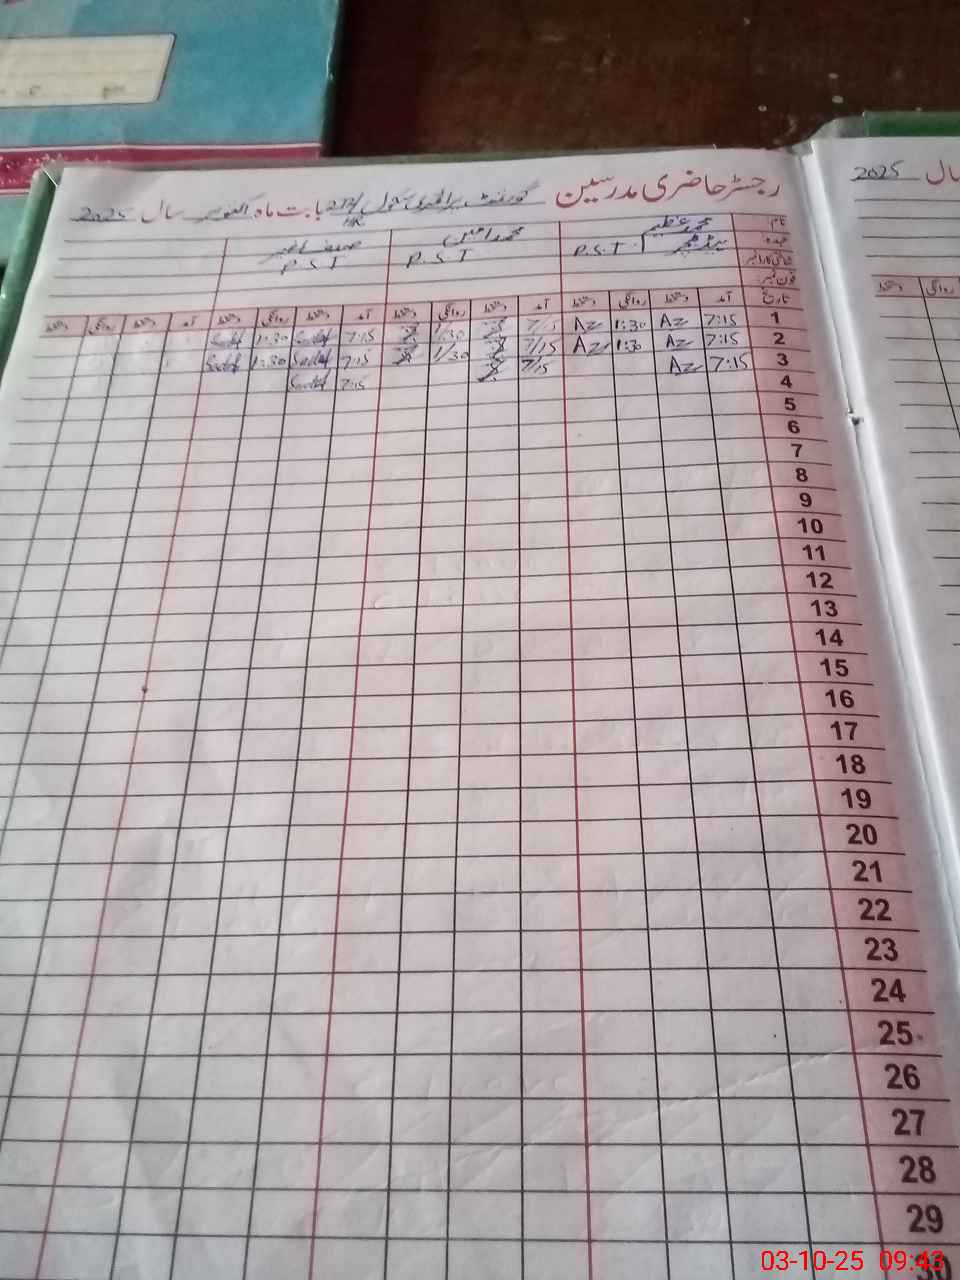 رجسٹر حاضری مدرسین گورنمنٹ پرائمری سکول 272/HR بابت ماہ اکتوبر سال 2025
نام محمد عظیم محمد امین
عہدہ ہیڈ ٹیچر P.S.T P.S.T P.S.T
شناختی کارڈ نمبر
فون نمبر
تاریخ آمد دستخط روانگی دستخط آمد دستخط روانگی دستخط آمد دستخط روانگی دستخط آمد دستخط روانگی دستخط
1 7:15 Az 1:30 Az 7/15 1/30 7:15 Sadaf 1:30 Sadaf
2 7:15 Az 1:30 Az 7/15 1/30 7:15 Sadaf 1:30 Sadaf
3 7:15 Az 7/15 7:15 Sadaf
4
5
6
7
8
9
10
11
12
13
14
15
16
17
18
19
20
21
22
23
24
25
26
27
28
29
سال 2025
روانگی دستخط
03-10-25 09:43